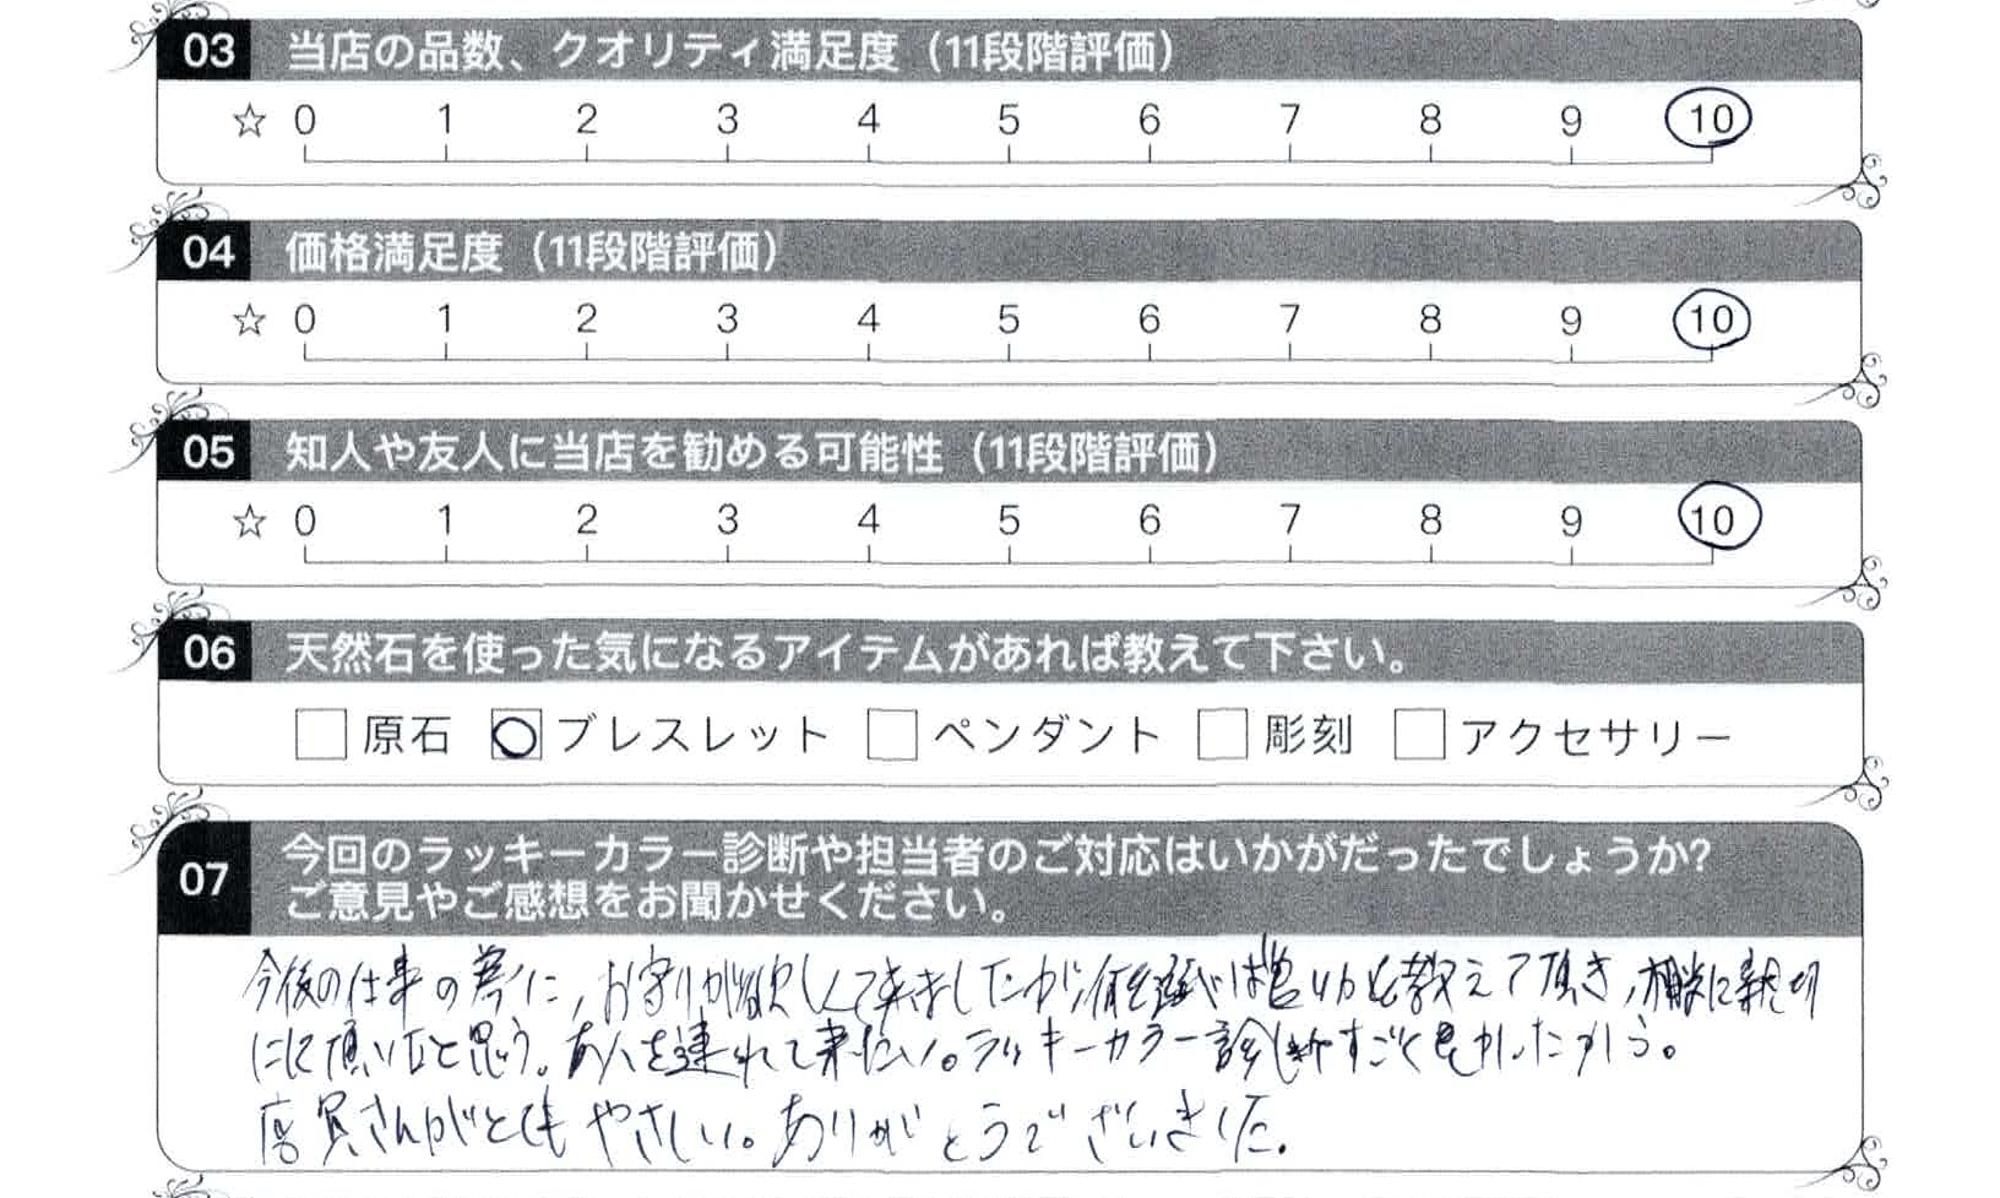 03 当店の品数、クオリティ満足度（11段階評価）
☆ 0 1 2 3 4 5 6 7 8 9 10
04 価格満足度（11段階評価）
☆ 0 1 2 3 4 5 6 7 8 9 10
05 知人や友人に当店を勧める可能性（11段階評価）
☆ 0 1 2 3 4 5 6 7 8 9 10
06 天然石を使った気になるアイテムがあれば教えて下さい。
原石 ブレスレット ペンダント 彫刻 アクセサリー
07 今回のラッキーカラー診断や担当者のご対応はいかがだったでしょうか?
ご意見やご感想をお聞かせください。
今後の仕事の為に,お守りが欲しくて来ましたが,何を選べば良いかも教えて頂き,相談に親切
にして頂いたと思う。友人を連れて来たい。ラッキーカラー診断すごく
店員さんがとてもやさしい。ありがとうございました.